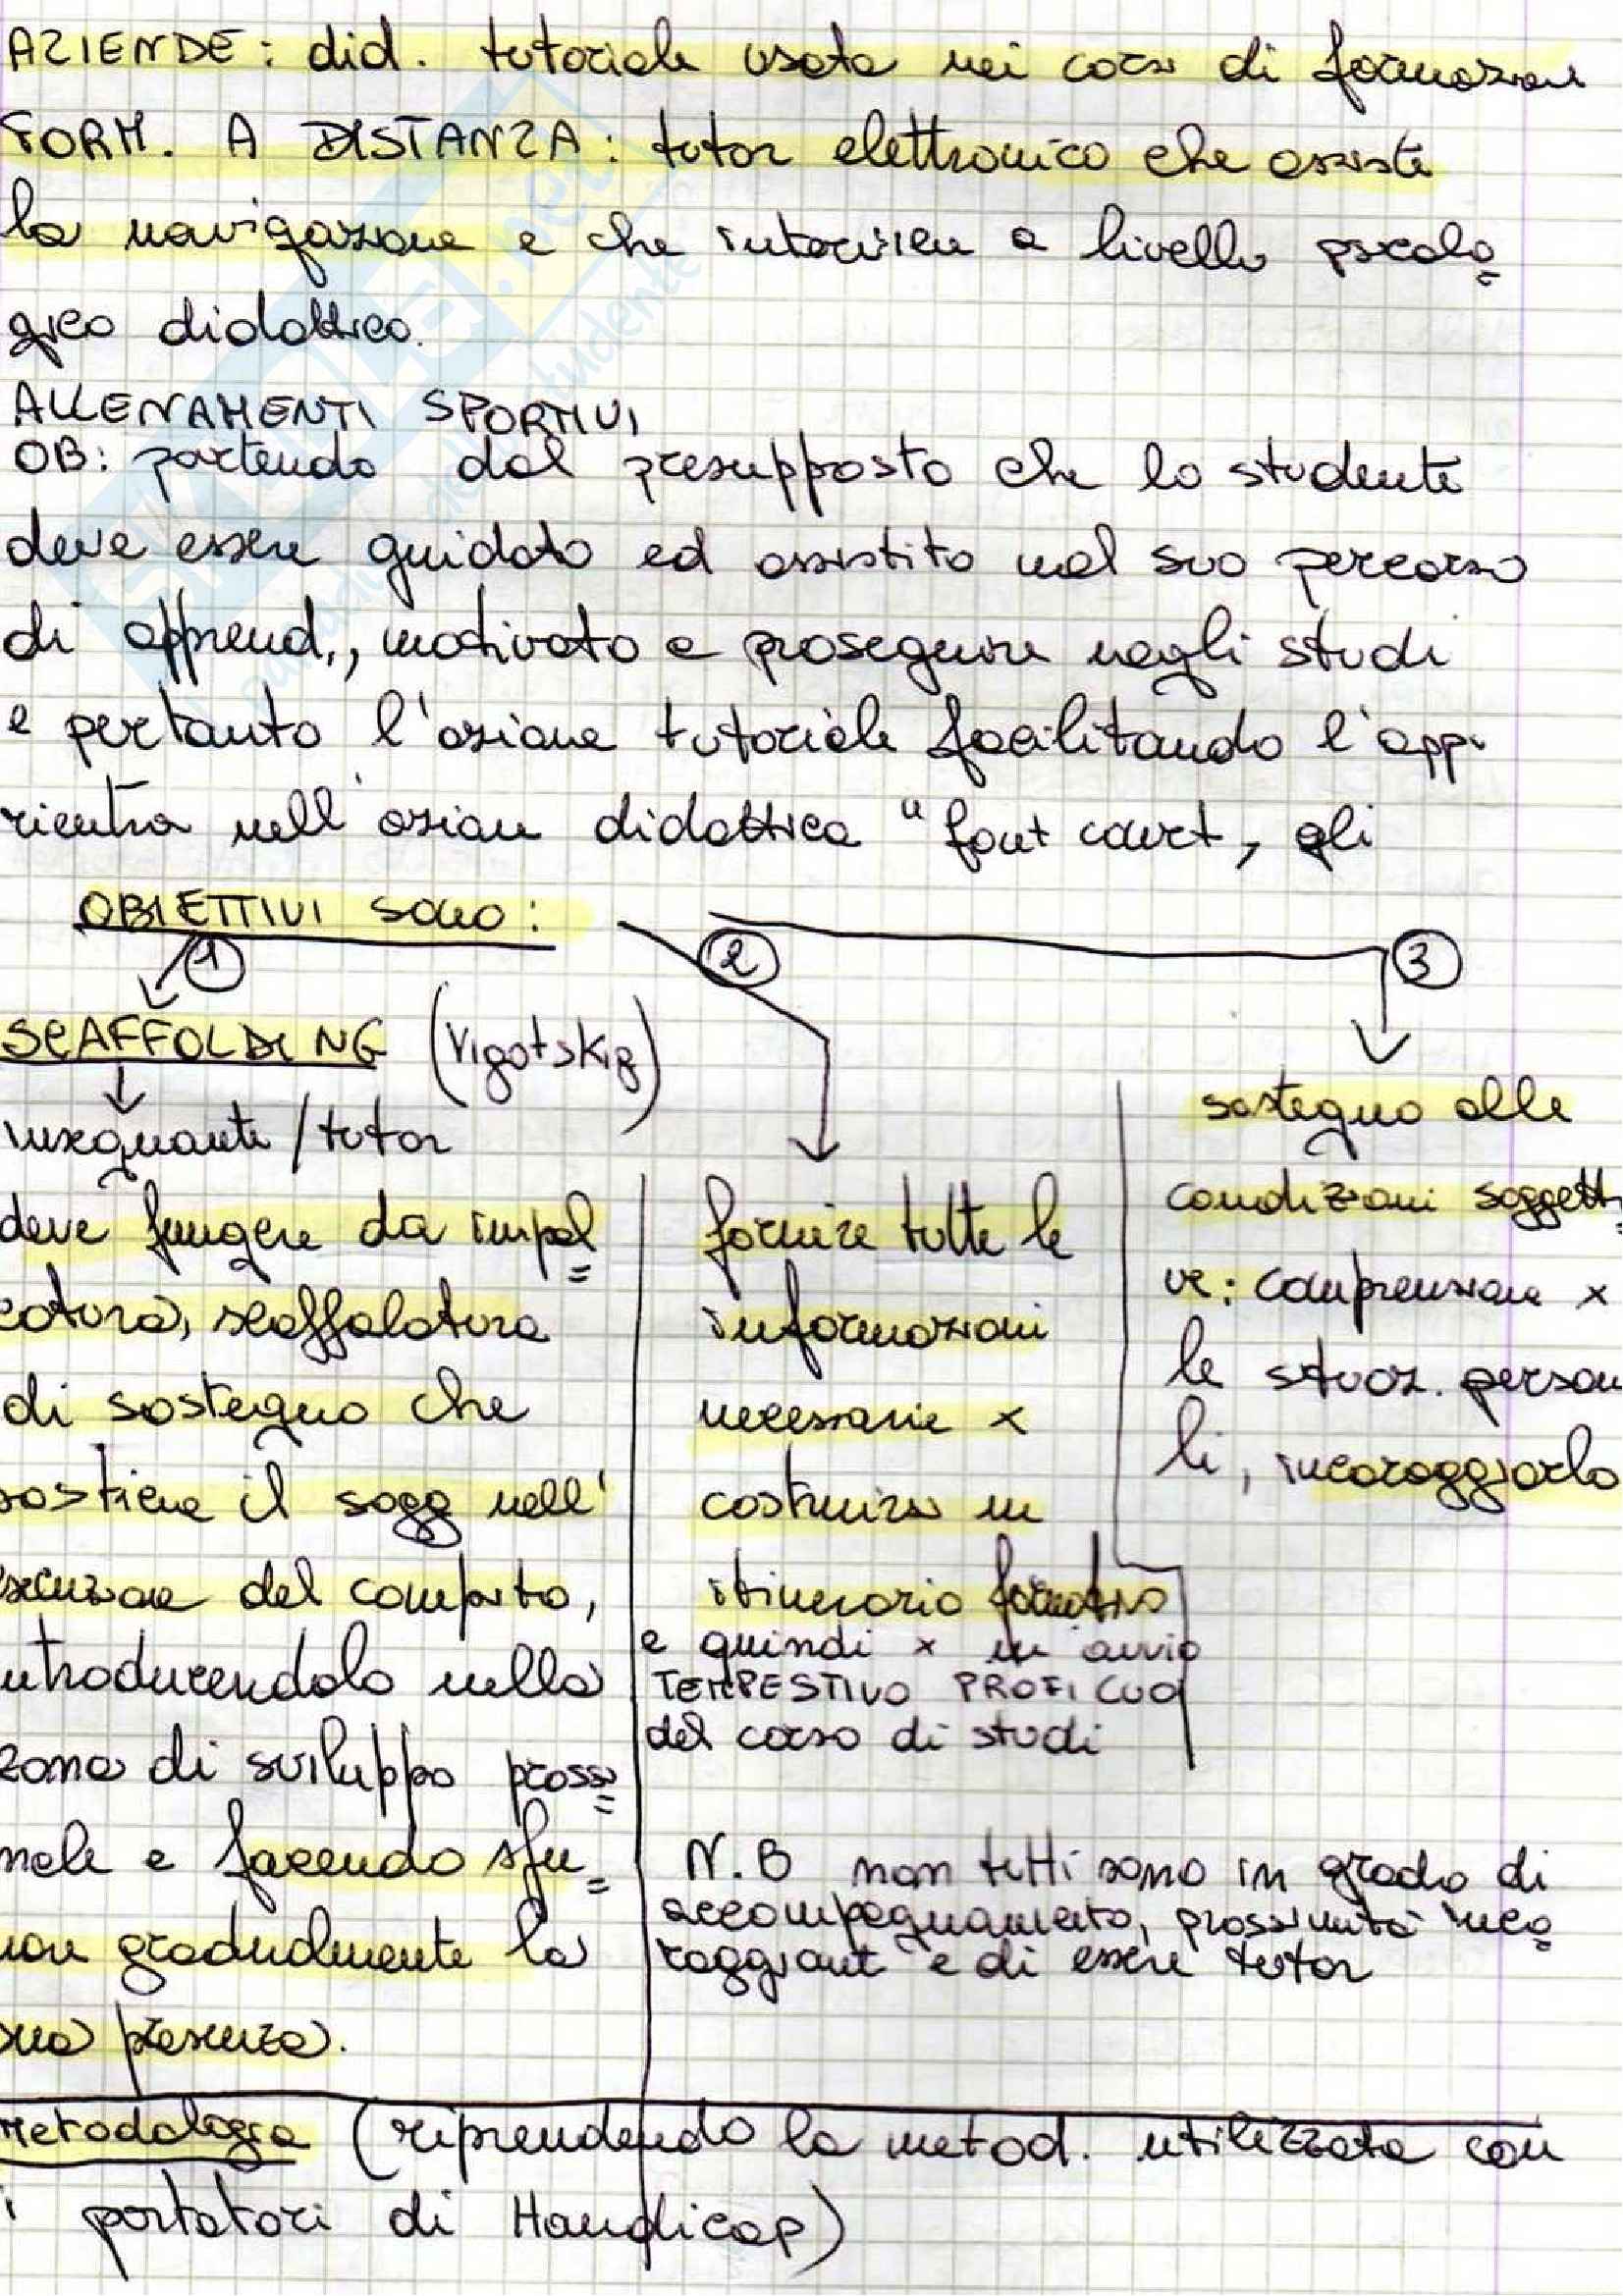 AZIENDE: did. tutoriale usata nei corsi di formazione
FORM. A DISTANZA: tutor elettronico che assiste
la navigazione e che interviene a livello psicolo=
gico didattico.
ALLENAMENTI SPORTIVI
OB: partendo dal presupposto che lo studente
deve essere guidato ed assistito nel suo percorso
di apprend., motivato a proseguire negli studi
e pertanto l'azione tutoriale facilitando l'app.
rientra nell'azione didattica "tout court, gli
OBIETTIVI sono:
1
2
3
SCAFFOLDING (Vigotskij)
insegnante/tutor
deve fungere da impal=
catura, scaffalatura
di sostegno che
sostiene il sogg nell'
esecuzione del compito,
introducendolo nella
zona di sviluppo prossi=
male e facendo sfu=
mare gradualmente la
sua presenza.
fornire tutte le
informazioni
necessarie x
costruirsi un
itinerario formativo
e quindi x un avvio
TEMPESTIVO PROFICUO
del corso di studi
sostegno alle
condizioni soggetti=
ve: comprensione x
le situaz. persona
li, incoraggiarlo
N.B non tutti sono in grado di
accompagnamento, prossimità inco=
raggiant e di essere tutor
Metodologia (riprendendo la metod. utilizzata con
i portatori di Handicap)
SKUOLA.net